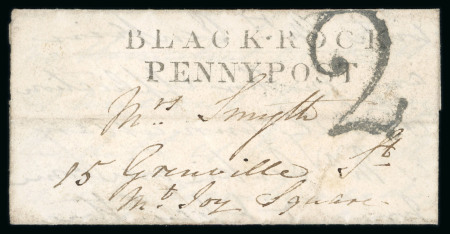 BLACK·ROCK
PENNY POST
2
Mrs Smyth
15 Grenville St
Mt Joy Square